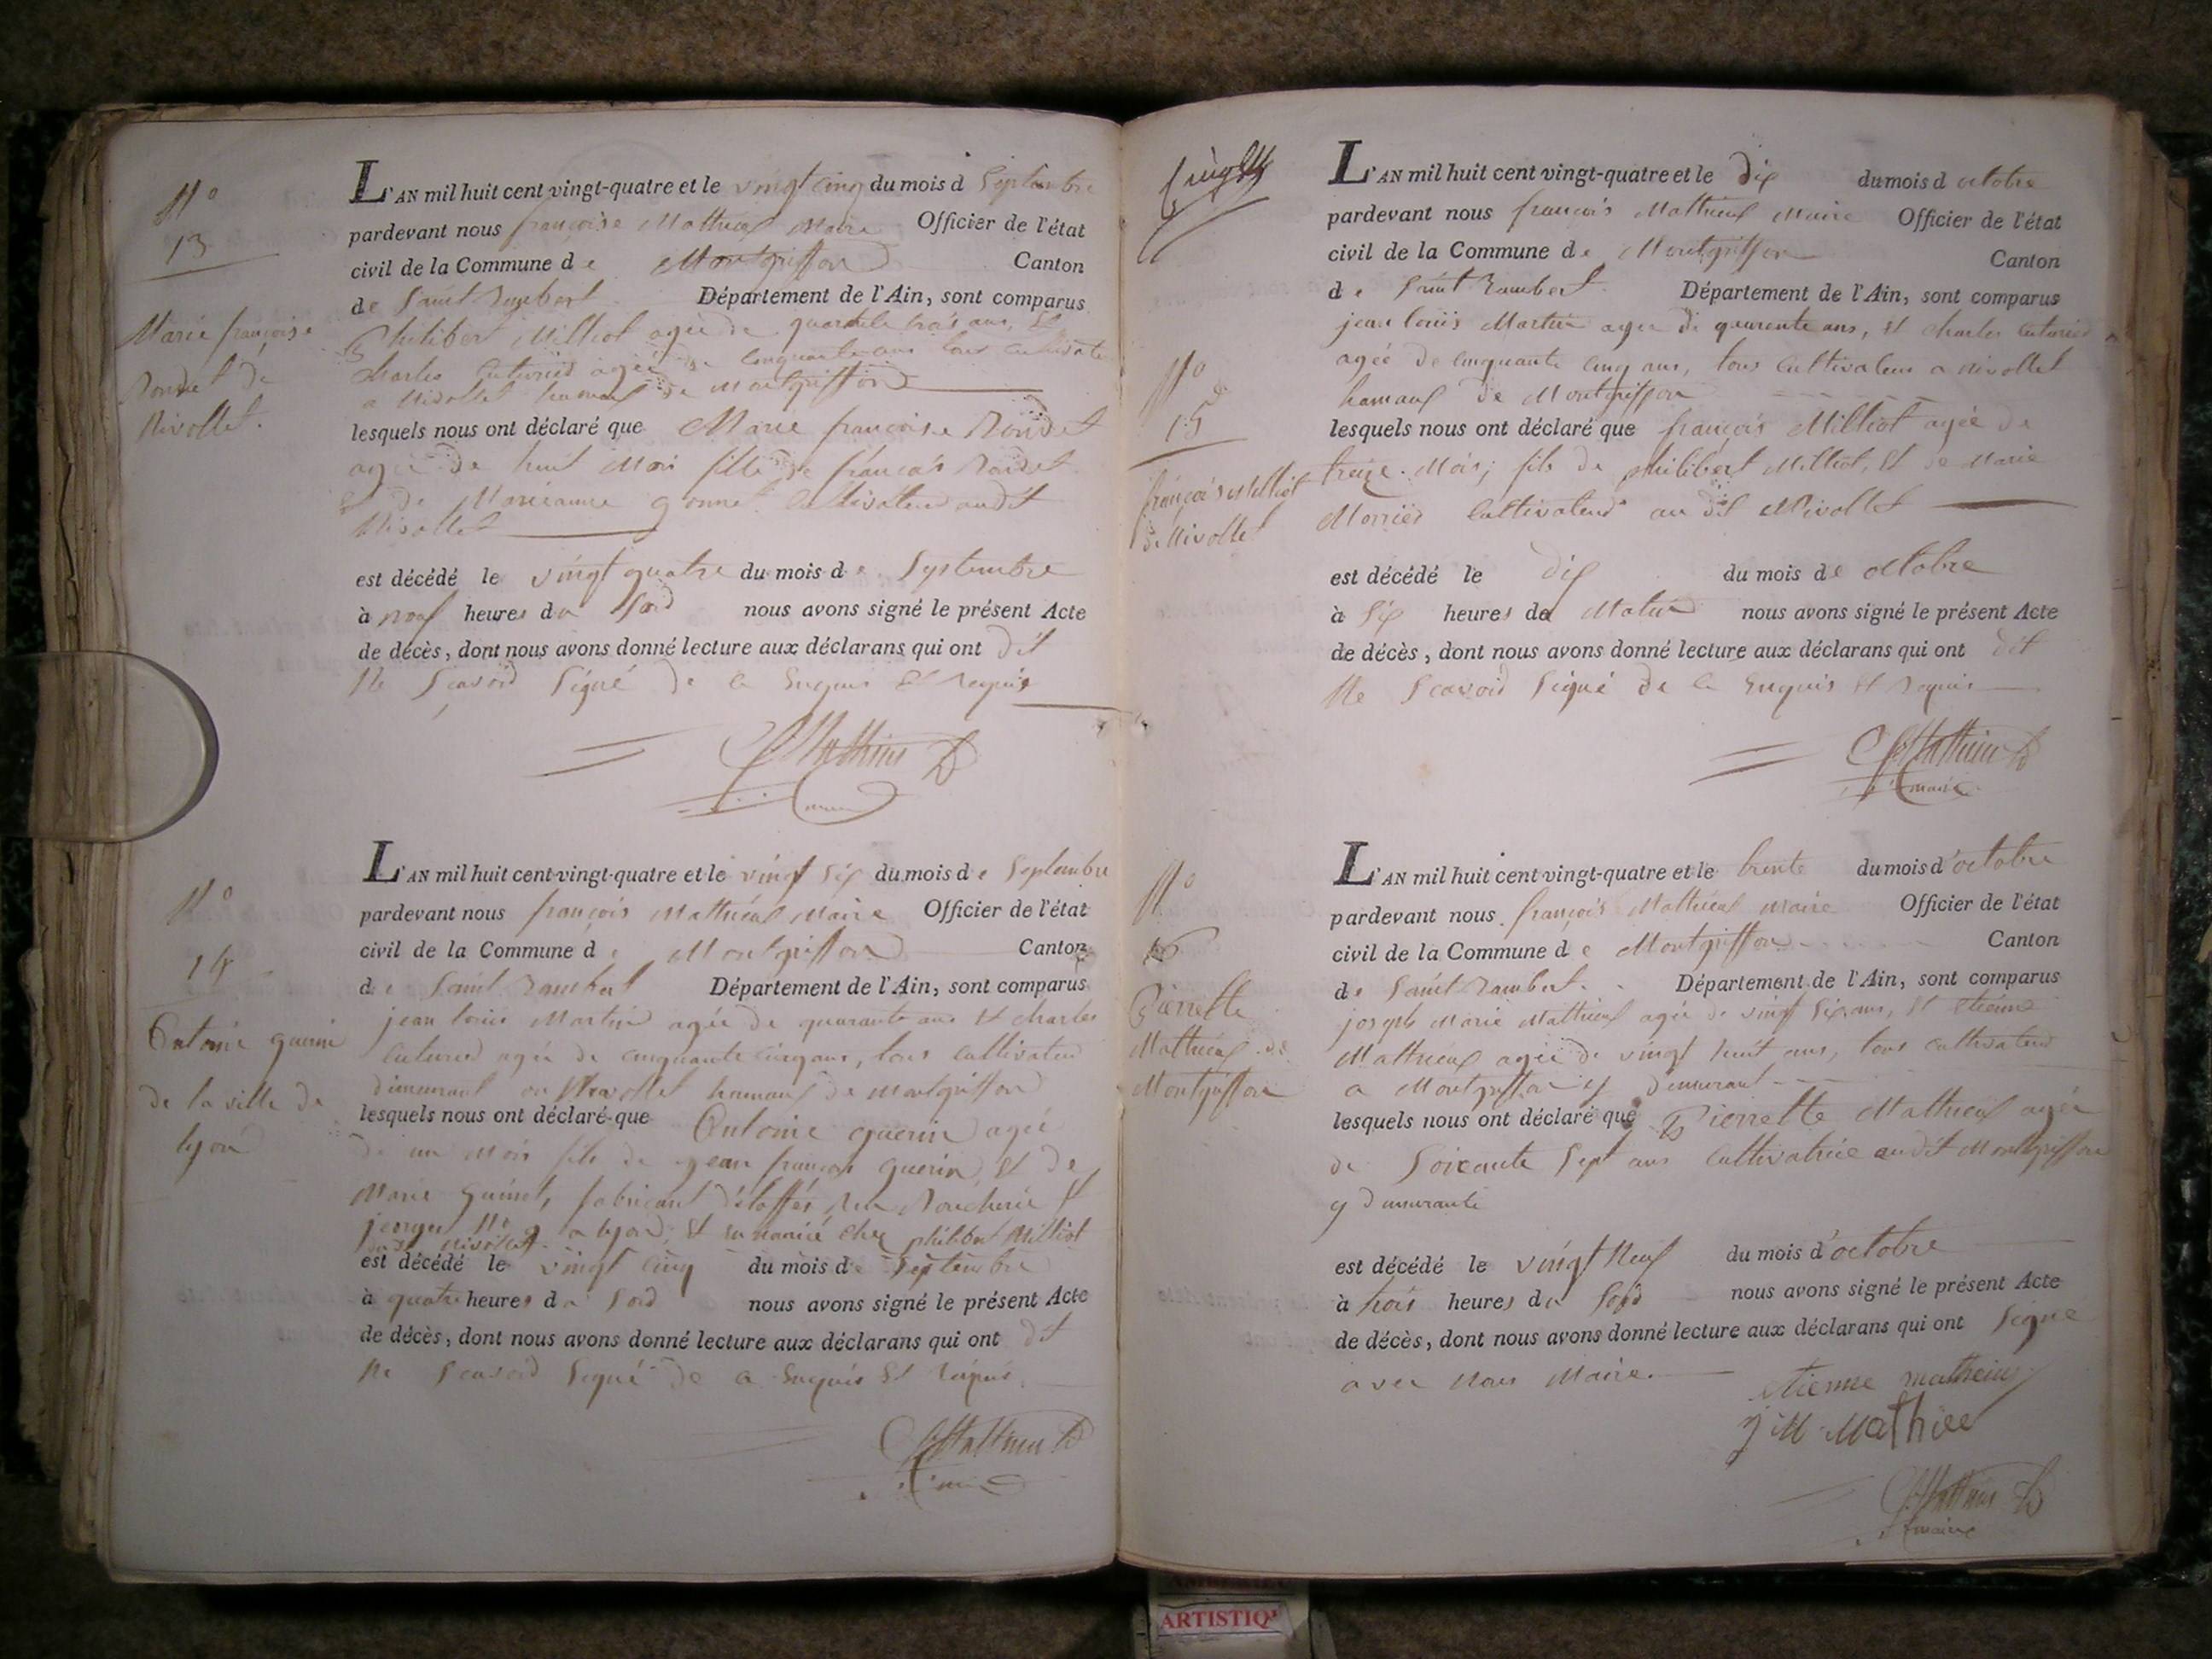 N°
13
Marie françoise
Rondet de
Nivollet.
L'AN mil huit cent vingt-quatre et le vingt cinq du mois d Septembre
pardevant nous françoise Mathieux Maire Officier de l'état
civil de la Commune de Montgriffon Canton
de Saint Rambert Département de l'Ain, sont comparus
Philibert Milliot agée de quarante trois ans, Et
charles agée de cinquante ans tous cultivateur
a Nivollet hamaux de Montgriffon
lesquels nous ont déclaré que Marie francoise Rondet
agée de huit Mois fille de françois Rondet
et de Marieanne gonnet Cultivateur audit
Nivollet
est décédé le vingt quatre du mois de Septembre
à neuf heures du Soir nous avons signé le présent Acte
de décès, dont nous avons donné lecture aux déclarans qui ont dit
Ne Scavoir Signé de ce Enquis Et Requis
Mathieux
maire
N°
14
Antoine guerin
de la ville de
lyon
L'AN mil huit cent vingt-quatre et le vingt Six du mois de Septembre
pardevant nous françois Mathieux Maire Officier de l'état
civil de la Commune de Montgriffon Canton
de Saint Rambert Département de l'Ain, sont comparus
jean louis Martin agée de quarante ans Et charles
agée de cinquante cinq ans, tous cultivateur
demeurant au Nivollet hamaux de Montgriffon
lesquels nous ont déclaré que Antoine guerin agée
de un Mois fils de jean françois guerin, Et de
Marie guinet, fabricant d'étoffes Rue Boucherie St
jeorges N° 9 a lyon, Et en Nourice chez philibert Milliot
Nivollet
est décédé le vingt cinq du mois de Septembre
à quatre heures du Soir nous avons signé le présent Acte
de décès, dont nous avons donné lecture aux déclarans qui ont dit
Ne Scavoir Signé de ce Enquis Et Requis.
Mathieux
maire
N°
15
françois Milliot
de Nivollet
L'AN mil huit cent vingt-quatre et le dix du mois d octobre
pardevant nous françois Mathieux Maire Officier de l'état
civil de la Commune de Montgriffon Canton
de Saint Rambert Département de l'Ain, sont comparus
jean louis Martin agee de quarente ans, Et charles
agée de cinquante cinq ans, tous Cultivateur a Nivollet
hamaux de Montgriffon
lesquels nous ont déclaré que françois Milliot agée de
treize Mois, fils de philibert Milliot, Et de Marie
Cultivateur au dit Nivollet
est décédé le dix du mois de octobre
à Six heures de Matin nous avons signé le présent Acte
de décès, dont nous avons donné lecture aux déclarans qui ont dit
Ne Scavoir Signé de ce Enquis Et Requis
Mathieux
maire
N°
16
Pierrette
Mathieux de
Montgriffon
L'AN mil huit cent vingt-quatre et le trente du mois d'octobre
pardevant nous françois Mathieux Maire Officier de l'état
civil de la Commune de Montgriffon Canton
de Saint Rambert. Département de l'Ain, sont comparus
joseph Marie Mathieux agée de vingt Six ans, Et Etienne
Mathieux agée de vingt huit ans, tous cultivateur
a Montgriffon y demeurant
lesquels nous ont déclaré que Pierrette Mathieux agée
de Soixante Sept ans Cultivatrice audit Montgriffon
y demeurante
est décédé le vingt Neuf du mois d'octobre
à trois heures du Soir nous avons signé le présent Acte
de décès, dont nous avons donné lecture aux déclarans qui ont Signé
avec Nous Maire.
etienne matheiux
J M Mathieu
Mathieux
maire
ARTISTIQ